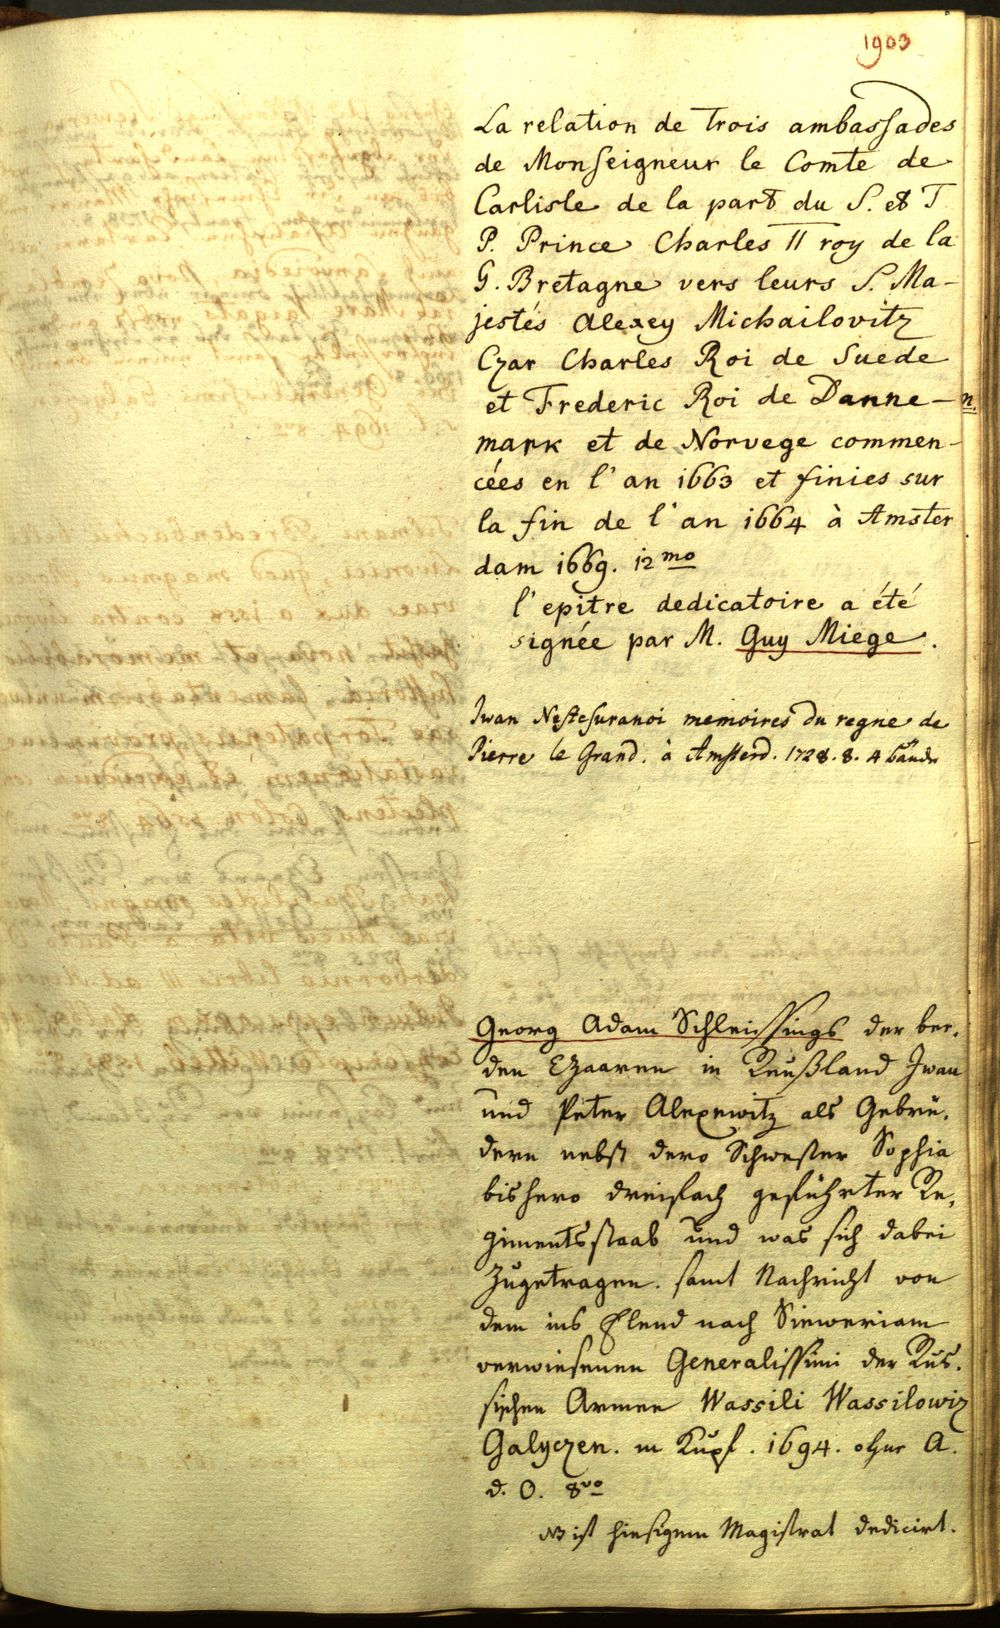 1903
La relation de trois ambassades
de Monseigneur le Comte de
Carlisle de la part du S. et T
P. Prince Charles II roy de la
G. Bretagne vers leurs S. Ma-
jestés Alexey Michailovitz
Czar Charles Roi de Suede
et Frederic Roi de Danne-
mark et de Norvege commen-
cées en l'an 1663 et finies sur
la fin de l'an 1664 à Amster
dam 1669. 12mo
l'epitre dedicatoire a été
signée par M. Guy Miege.
Iwan Nestesuranoi memoires du regne de
Pierre le Grand. à Amsterd. 1728. 8. 4 bände
Georg Adam Schleissings der bey-
den Czaaren in Reußland Iwan
und Peter Alexewitz als Gebrü-
dern nebst dero Schwester Sophia
bishero dreifach geführter Re-
gimentsstaab und was sich dabei
zugetragen. samt Nachricht von
dem ins Elend nach Sieweriam
verwiesenen Generalissimi der Rus-
sischen Armee Wassili Wassilowiz
Galyczen. m Kupf. 1694. ohne A.
d. O. 8vo
NB ist hiesigem Magistrat dedicirt.